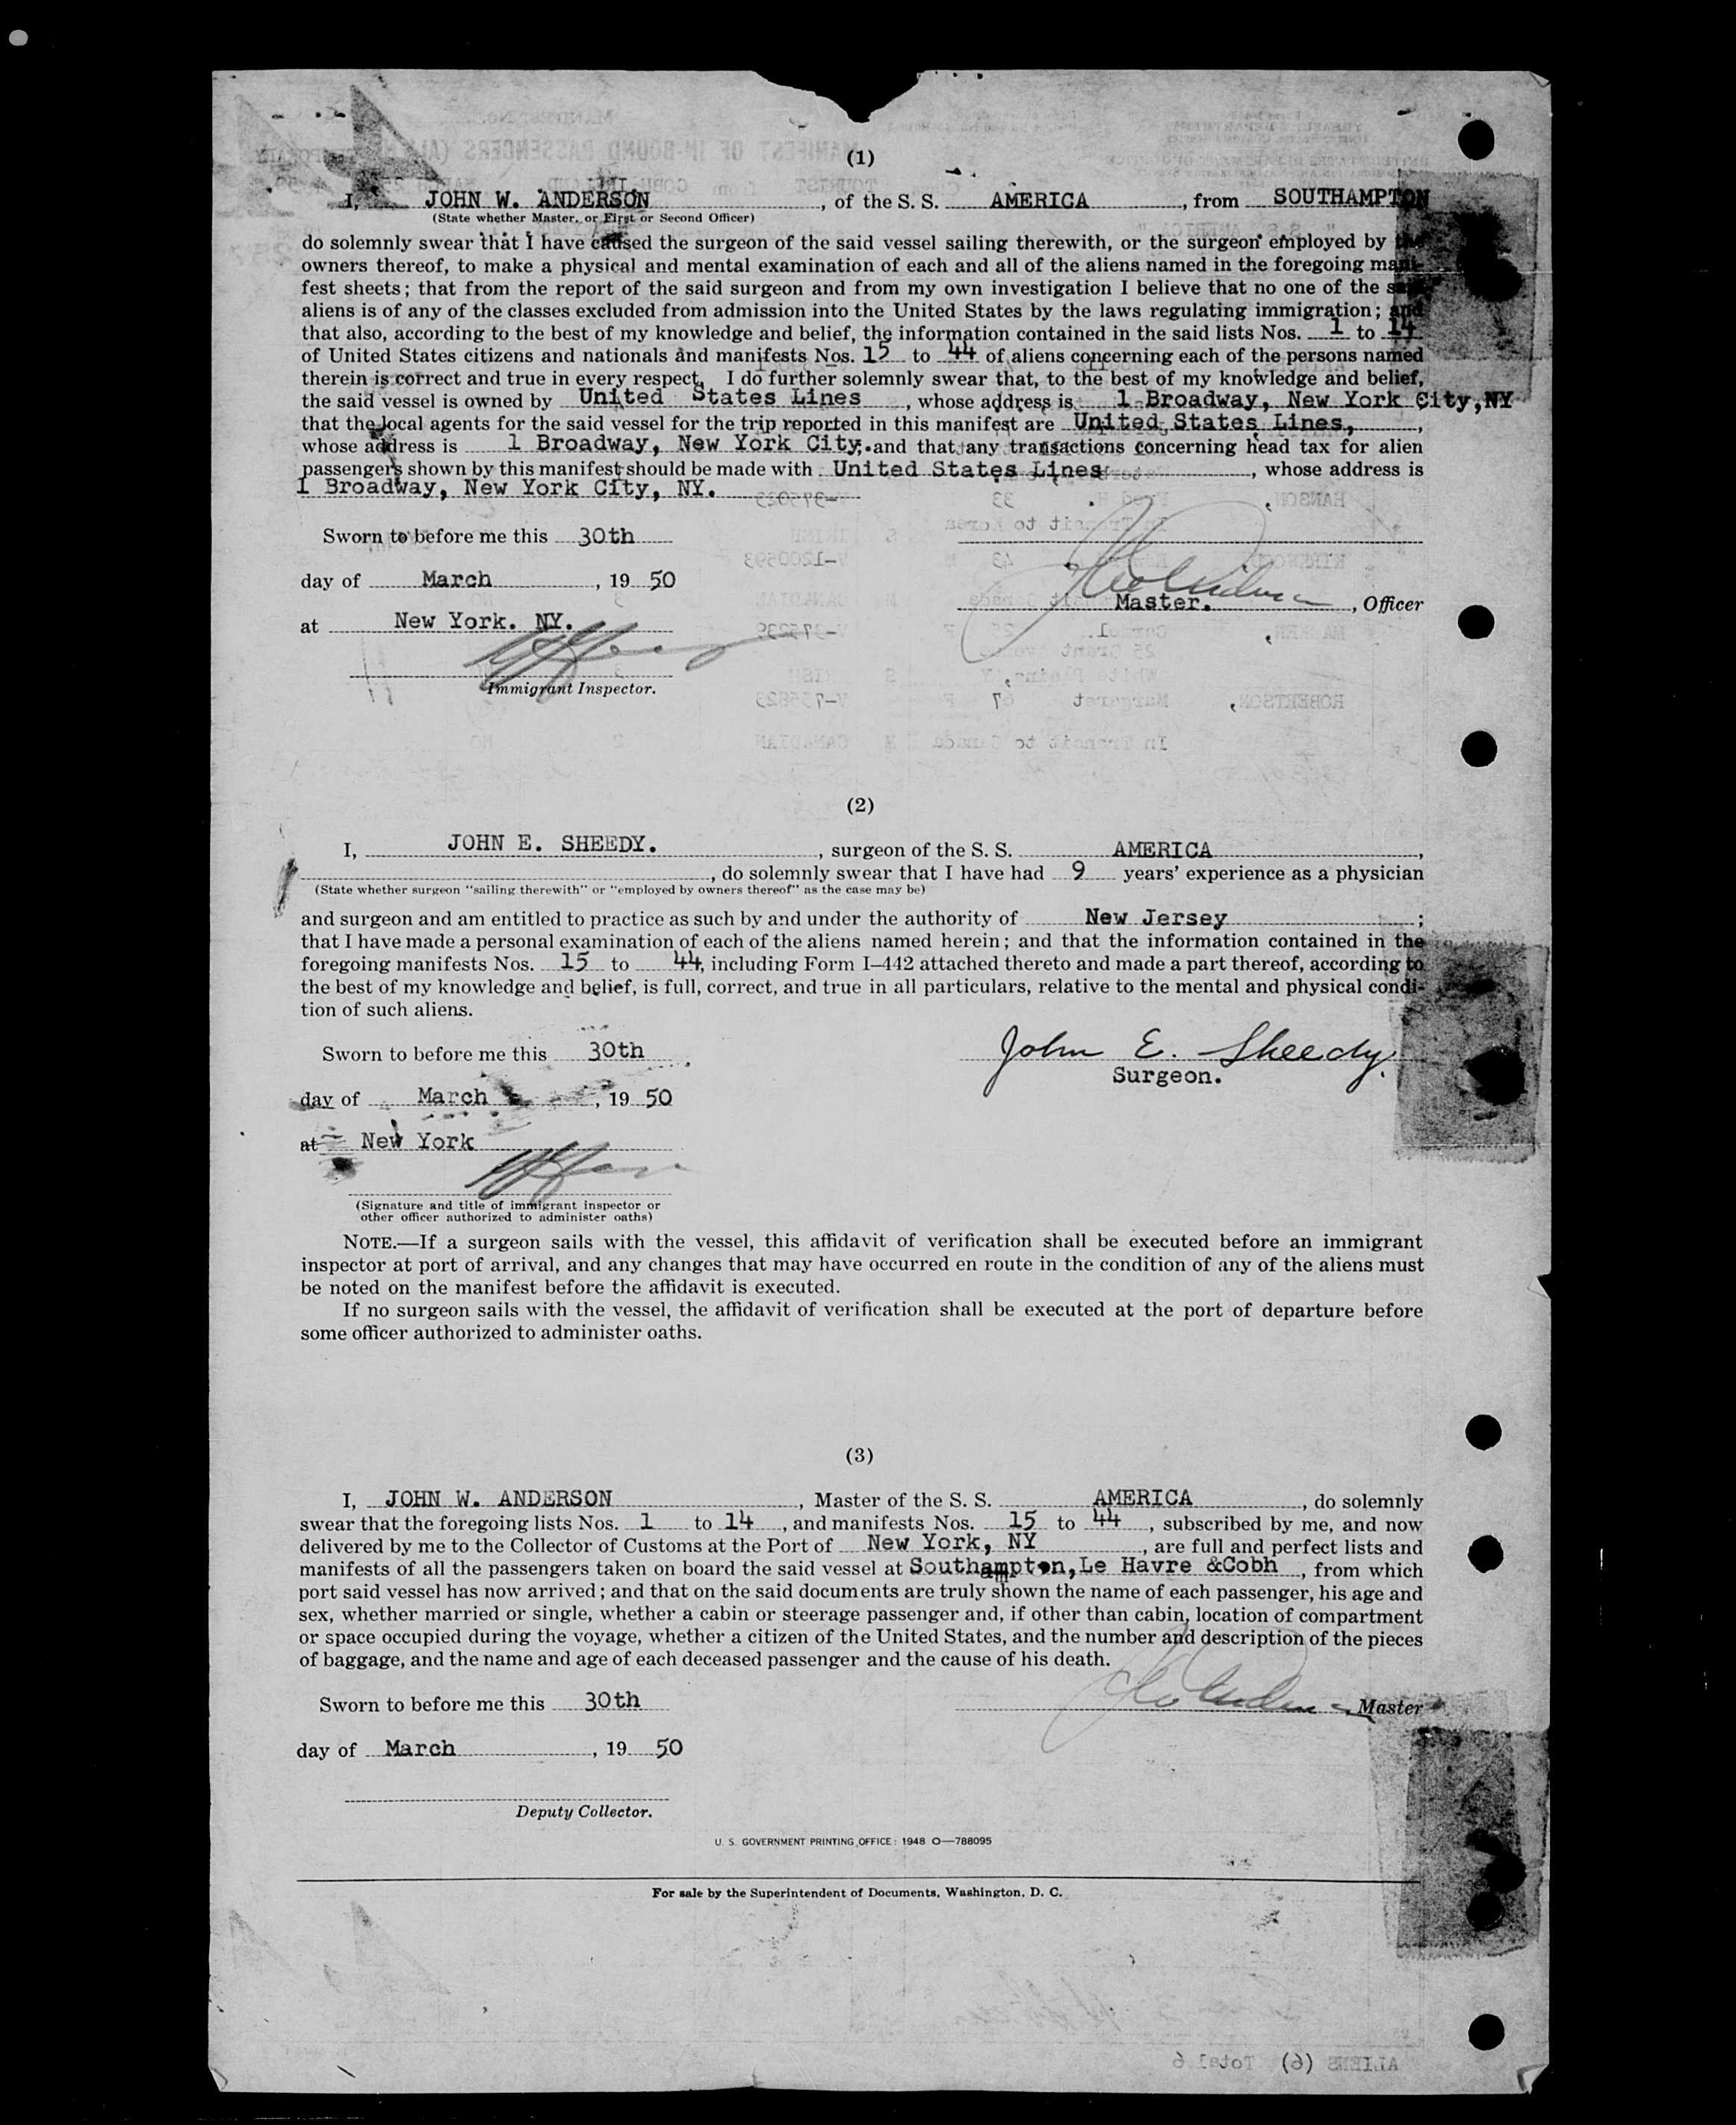 (1)
I, JOHN W. ANDERSON, of the S. S. AMERICA, from SOUTHAMPTON
(State whether Master, or First or Second Officer)
do solemnly swear that I have caused the surgeon of the said vessel sailing therewith, or the surgeon employed by the
owners thereof, to make a physical and mental examination of each and all of the aliens named in the foregoing mani-
fest sheets; that from the report of the said surgeon and from my own investigation I believe that no one of the said
aliens is of any of the classes excluded from admission into the United States by the laws regulating immigration; and
that also, according to the best of my knowledge and belief, the information contained in the said lists Nos. 1 to 14
of United States citizens and nationals and manifests Nos. 15 to 44 of aliens concerning each of the persons named
therein is correct and true in every respect. I do further solemnly swear that, to the best of my knowledge and belief,
the said vessel is owned by United States Lines, whose address is 1 Broadway, New York City, NY
that the local agents for the said vessel for the trip reported in this manifest are United States Lines,
whose address is 1 Broadway, New York City. and that any transactions concerning head tax for alien
passengers shown by this manifest should be made with United States Lines, whose address is
1 Broadway, New York City, NY.
Sworn to before me this 30th
day of March, 19 50
Master., Officer
at New York. NY.
Immigrant Inspector.
(2)
I, JOHN E. SHEEDY., surgeon of the S. S. AMERICA,
, do solemnly swear that I have had 9 years' experience as a physician
(State whether surgeon "sailing therewith" or "employed by owners thereof" as the case may be)
and surgeon and am entitled to practice as such by and under the authority of New Jersey;
that I have made a personal examination of each of the aliens named herein; and that the information contained in the
foregoing manifests Nos. 15 to 44, including Form I-442 attached thereto and made a part thereof, according to
the best of my knowledge and belief, is full, correct, and true in all particulars, relative to the mental and physical condi-
tion of such aliens.
Sworn to before me this 30th
John E. Sheedy.
Surgeon.
day of March, 19 50
at New York
(Signature and title of immigrant inspector or
other officer authorized to administer oaths)
NOTE.—If a surgeon sails with the vessel, this affidavit of verification shall be executed before an immigrant
inspector at port of arrival, and any changes that may have occurred en route in the condition of any of the aliens must
be noted on the manifest before the affidavit is executed.
If no surgeon sails with the vessel, the affidavit of verification shall be executed at the port of departure before
some officer authorized to administer oaths.
(3)
I, JOHN W. ANDERSON, Master of the S. S. AMERICA, do solemnly
swear that the foregoing lists Nos. 1 to 14, and manifests Nos. 15 to 44, subscribed by me, and now
delivered by me to the Collector of Customs at the Port of New York, NY, are full and perfect lists and
manifests of all the passengers taken on board the said vessel at Southampton, Le Havre &Cobh, from which
port said vessel has now arrived; and that on the said documents are truly shown the name of each passenger, his age and
sex, whether married or single, whether a cabin or steerage passenger and, if other than cabin, location of compartment
or space occupied during the voyage, whether a citizen of the United States, and the number and description of the pieces
of baggage, and the name and age of each deceased passenger and the cause of his death.
Sworn to before me this 30th
, Master
day of March, 19 50
Deputy Collector.
U. S. GOVERNMENT PRINTING OFFICE: 1948 O—788095
For sale by the Superintendent of Documents, Washington, D. C.